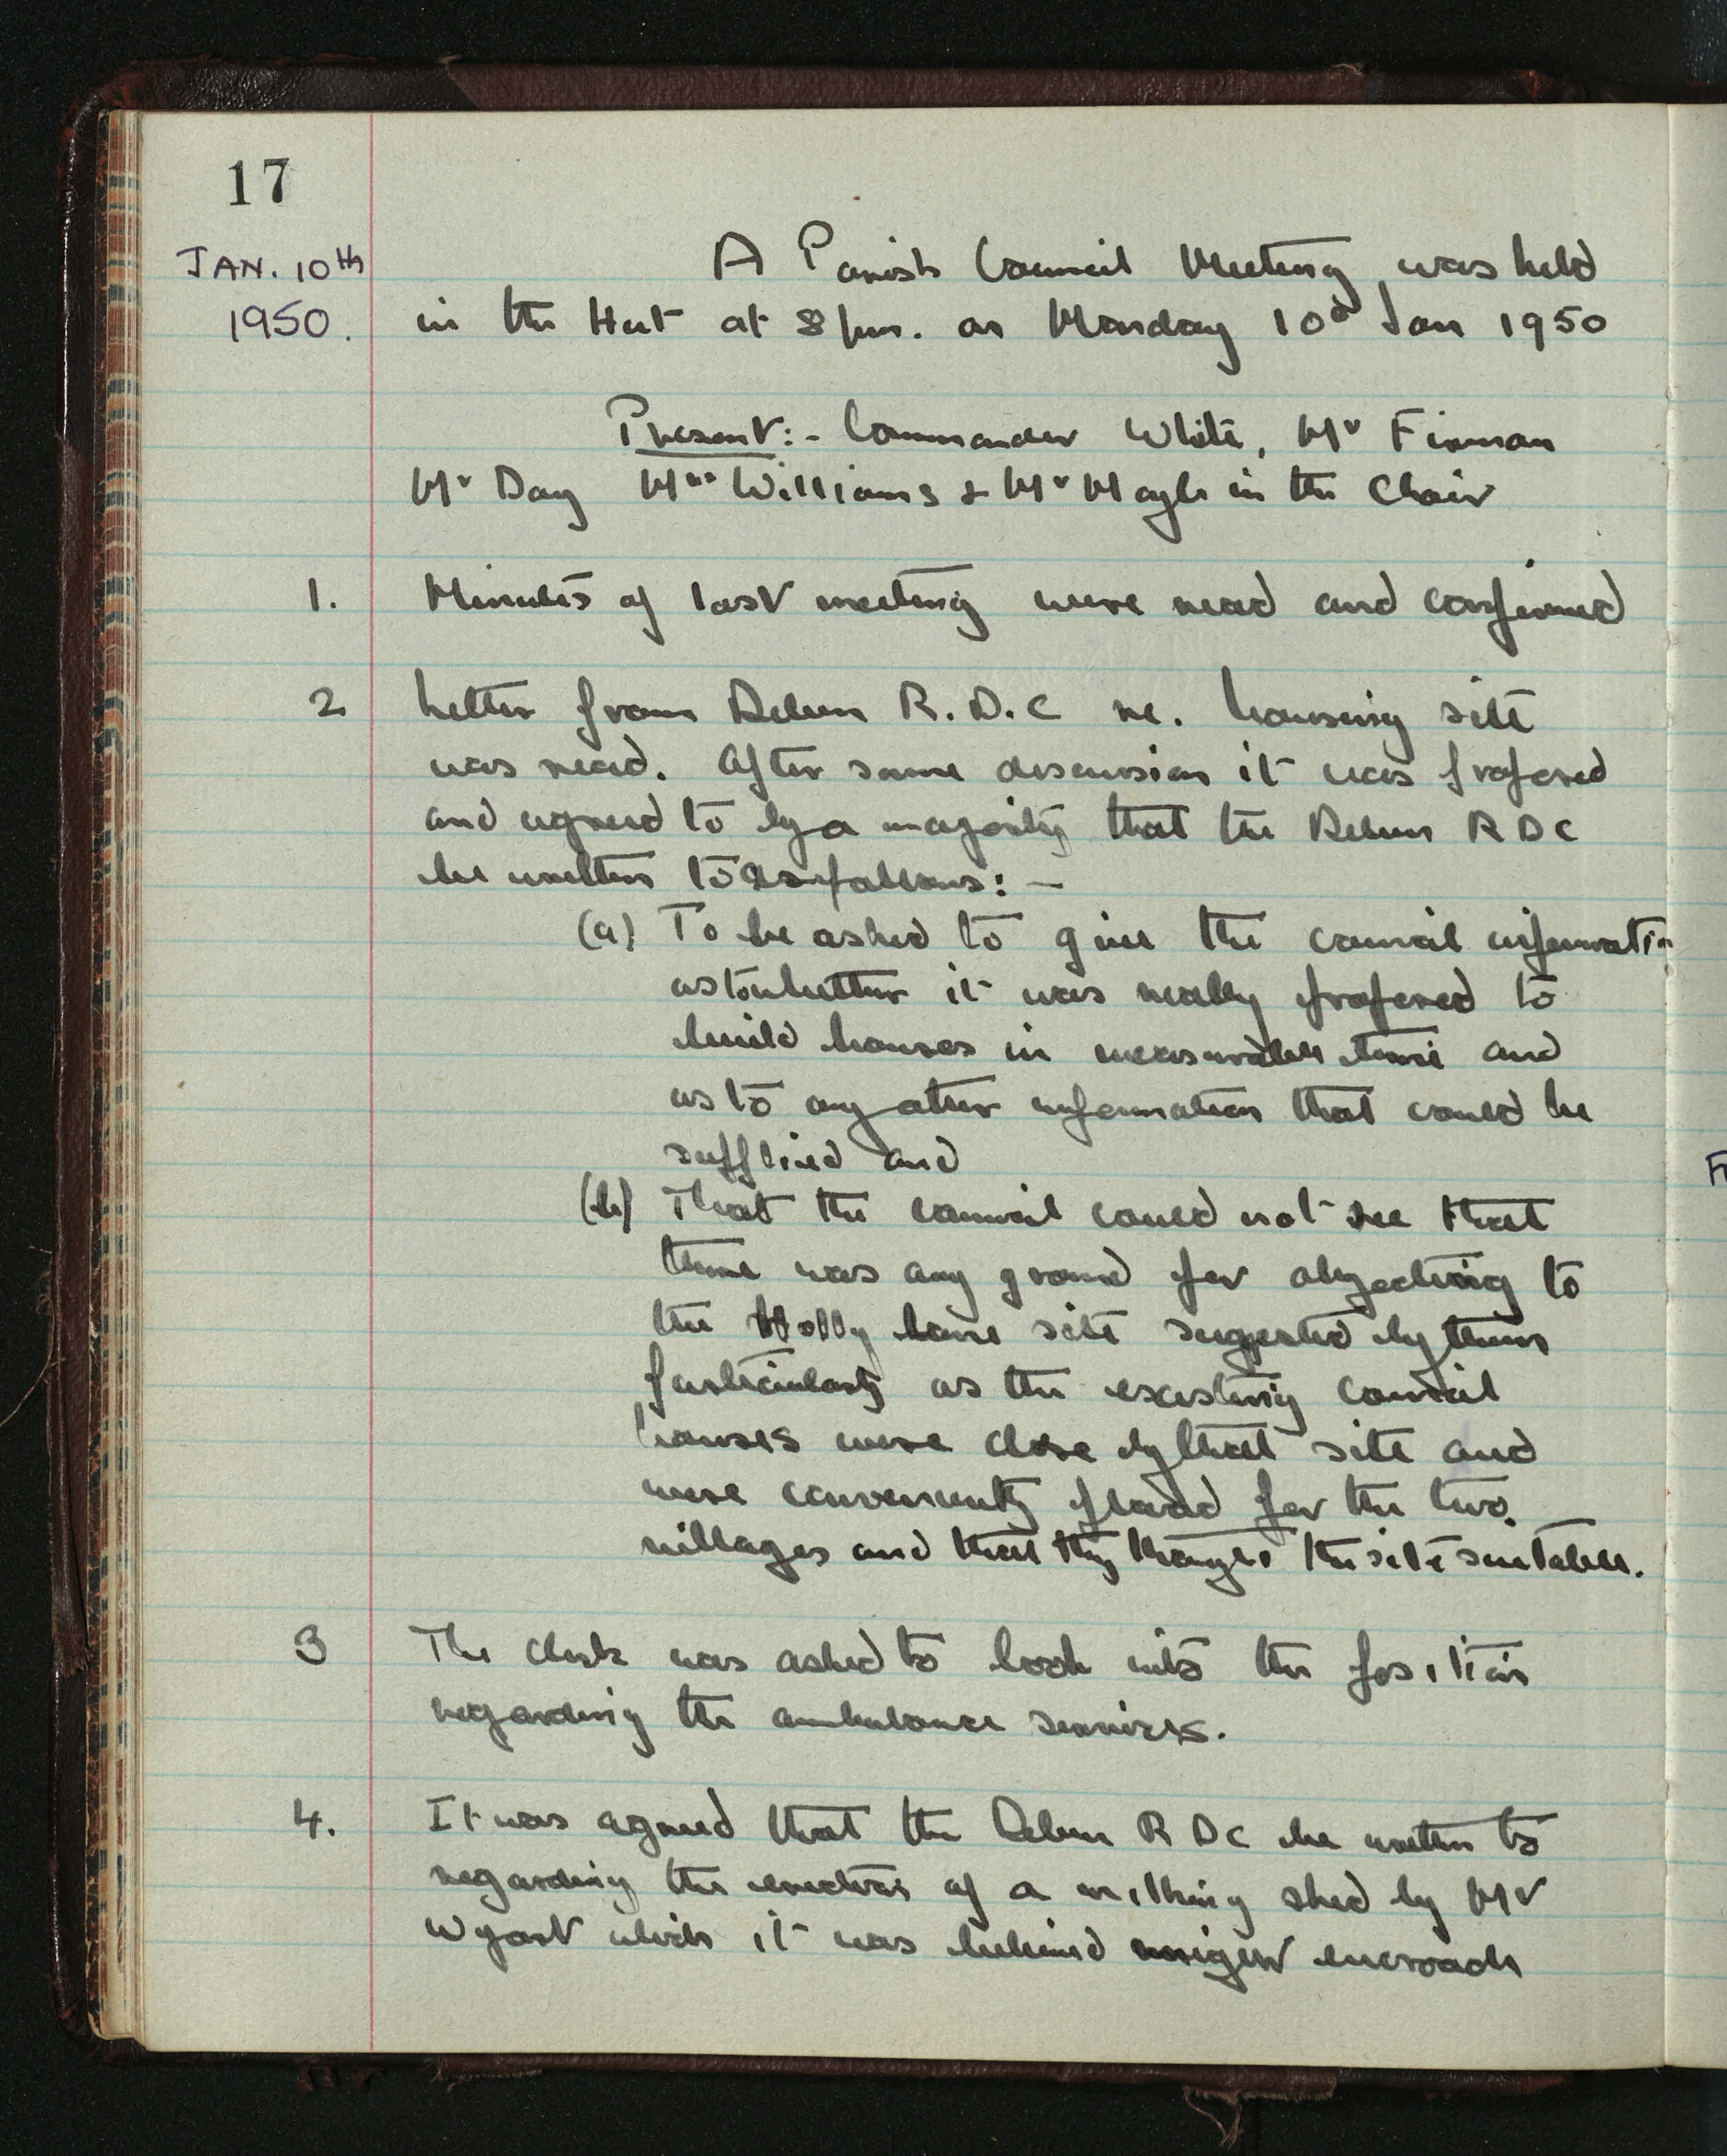 17
JAN. 10th
1950.
A Parish Council Meeting was held
in the Hut at 8 pm. on Monday 10th Jan 1950
Present:- Commander White, Mr Firman
Mr Day Mrs Williams & Mr Hayle in the Chair
1. Minutes of last meeting were read and confirmed
2 Letter from Deben R.D.C re. housing site
was read. After some discussion it was proposed
and agreed to by a majority that the Deben R D C
be written to as follows: -
(a) To be asked to give the council information
as to whether it was really proposed to
build houses in measurable time and
as to any other information that could be
supplied and
(b) That the council could not see that
there was any ground for objecting to
the Holly Lane site suggested by them
particularly as the existing council
houses were close by that site and
were conveniently placed for the two
villages and that they thought the site suitable.
3 The Clerk was asked to look into the position
regarding the ambulance services.
4. It was agreed that the Deben R D C be written to
regarding the erection of a milking shed by Mr
Wyatt which it was believed might encroach